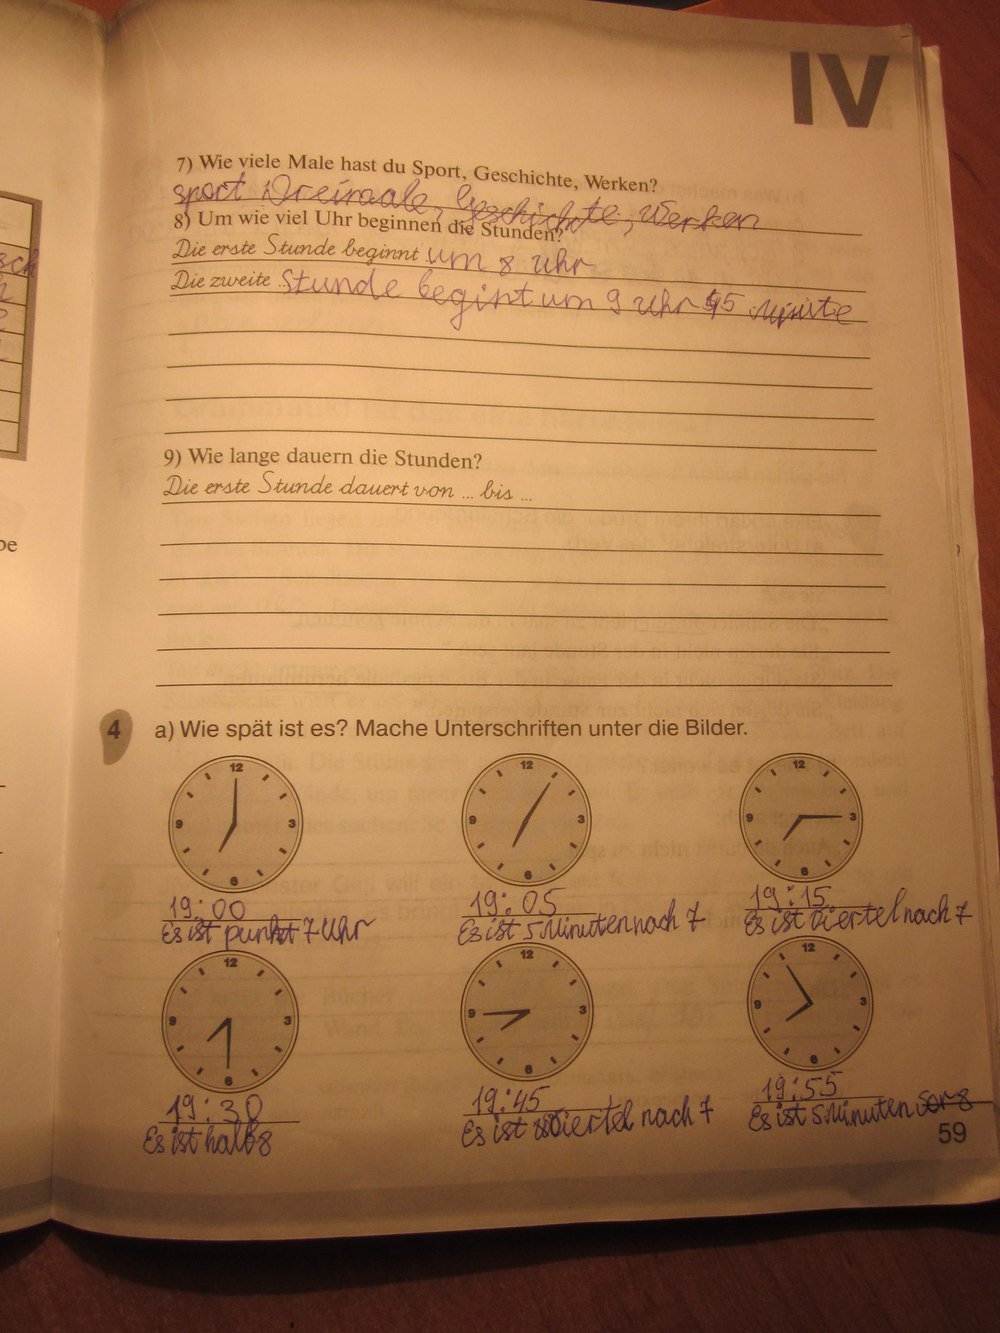 IV
7) Wie viele Male hast du Sport, Geschichte, Werken?
sport Dreimale, Geschichte, Werken
8) Um wie viel Uhr beginnen die Stunden?
Die erste Stunde beginnt um 8 Uhr
Die zweite Stunde begint um 9 Uhr 45 Minute
9) Wie lange dauern die Stunden?
Die erste Stunde dauert von ... bis ...
4 a) Wie spät ist es? Mache Unterschriften unter die Bilder.
12 12 12
9 3 9 3 9 3
6 6 6
19:00 19:05 19:15
Es ist punkt 7 Uhr Es ist 5 Minuten nach 7 Es ist Viertel nach 7
12 12 12
9 3 9 3 9 3
6 6 6
19:30 19:45 19:55
Es ist halb 8 Es ist Viertel nach 7 Es ist 5 Minuten vor 8
59